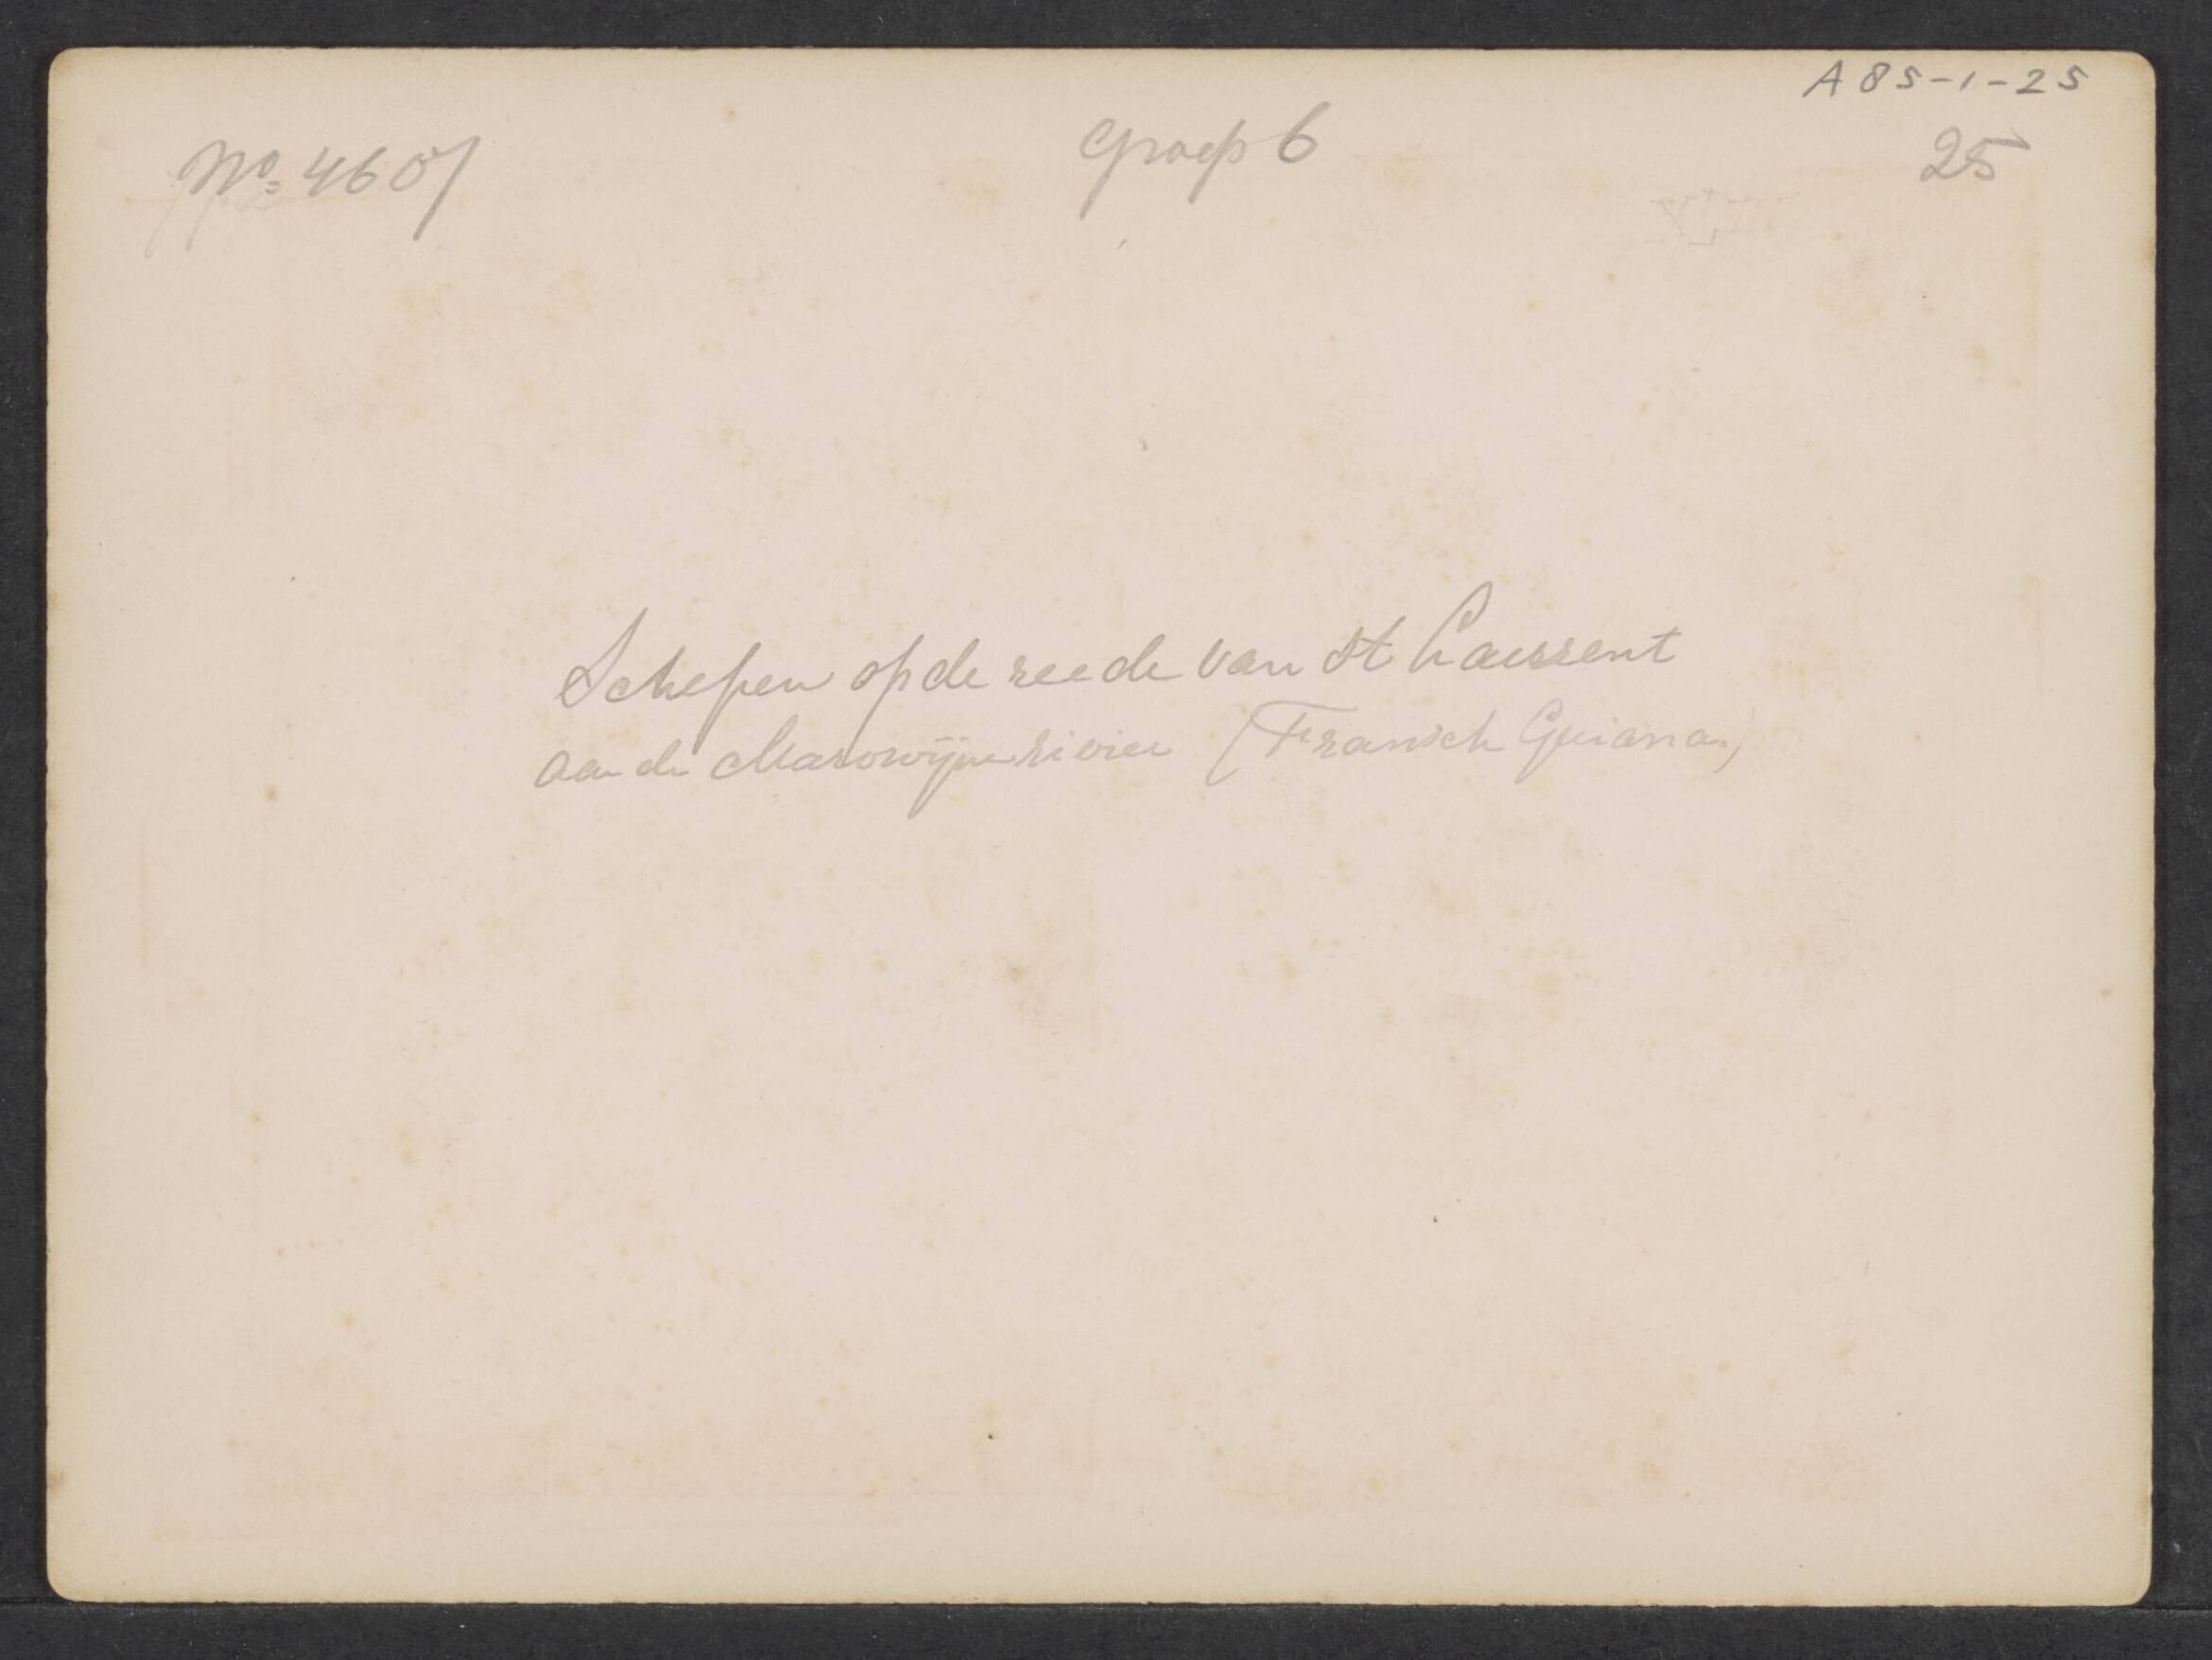 A85-1-25
No. 4607
Groep 6
25
Schepen op de reede van St Laurent
aan de Marowijnerivier (Fransch Guiana)